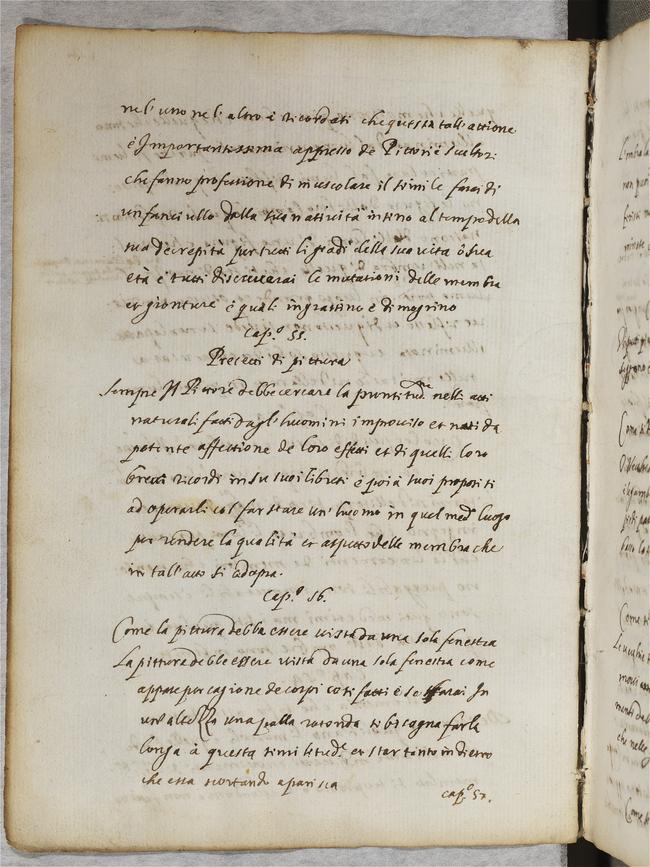 nel' uno nel' altro è ricordati che questa tall' attione
è Importantissima appresso de Pittori è scultori
che fanno professione di muscolare il simile farai di
un fanciullo dalla sua natività insino al tempo della
sua decrepità per tutti li gradi della sua vita ò sua
età è tutti discriverai le mutationi delle membra
et gionture è quali ingrassino è dimagrino
Cap.º 55.
Precetti di pittura
Sempre Il Pittore debbe cercare la prontitudine nelli atti
naturali fatti dagl' huomini improviso et nati da
potente affettione de loro effetti et di quelli loro
brevi ricordi in su suoi libreti è poi à suoi propositi
ad operarli col' far stare un' huomo in quel med.º luogo
per vendere la qualità et aspetto delle membra che
in tall' atto si adopra.
Cap.º 56.
Come la pittura debba essere vista da una sola fenestra
La pittura debbe essere vista da una sola fenestra come
appare per cagione de corpi cosi fatti è se farai In
un' altezza una palla rotonda ti bisogna farla
longa à questa similitud.e et star tanto indietro
che essa scortando aparisca
cap.º 57.